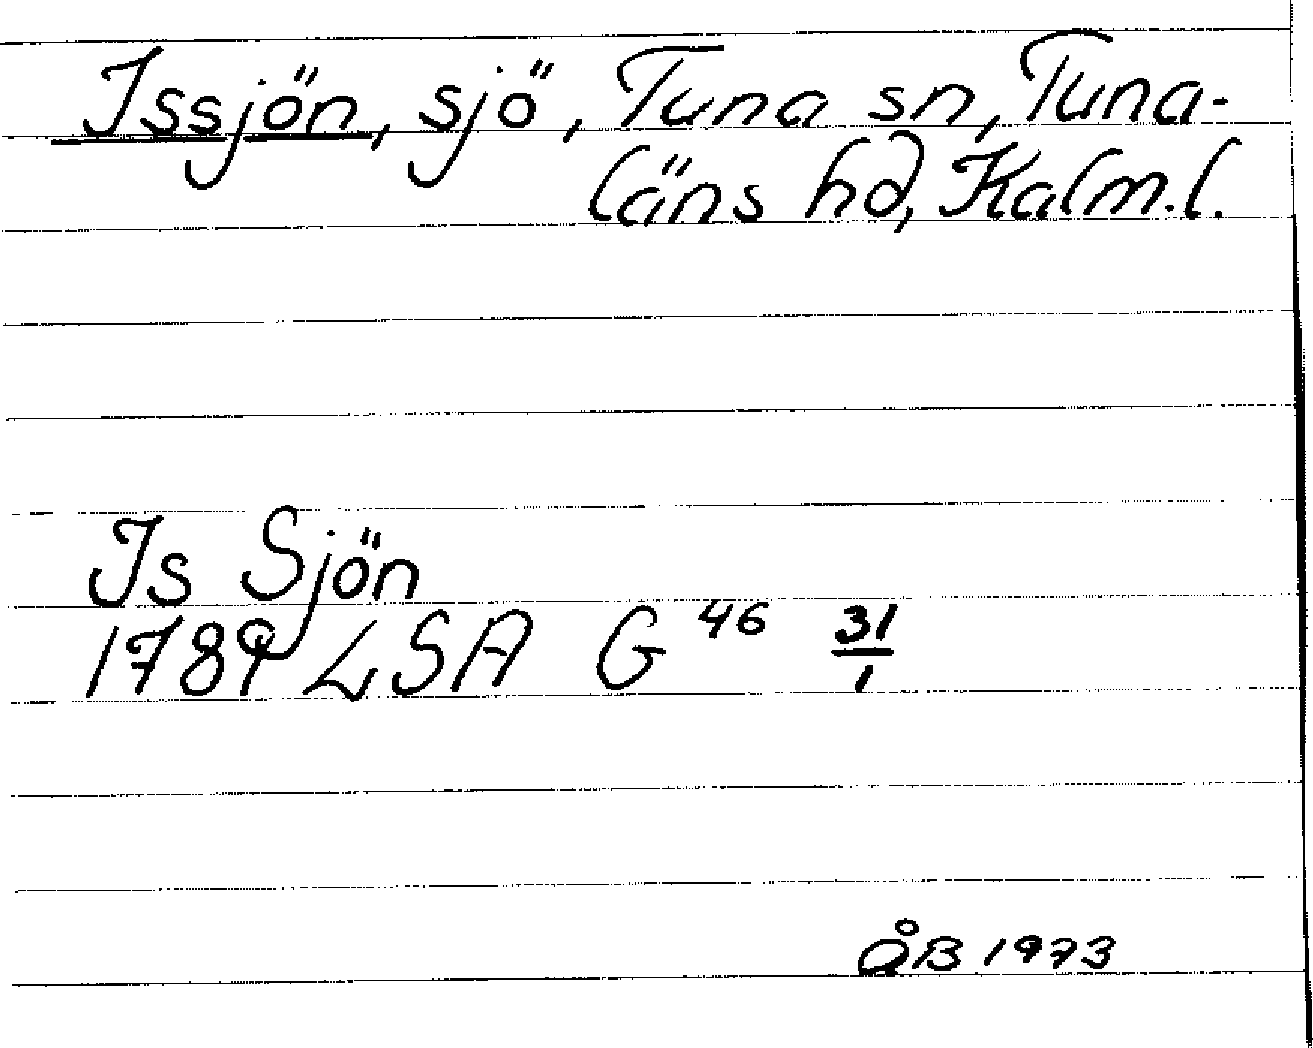 Issjön, sjö, Tuna sn, Tuna-
läns hd, Kalm.l.
Is Sjön
1789 LSA G 46 31/1
ÅB 1973